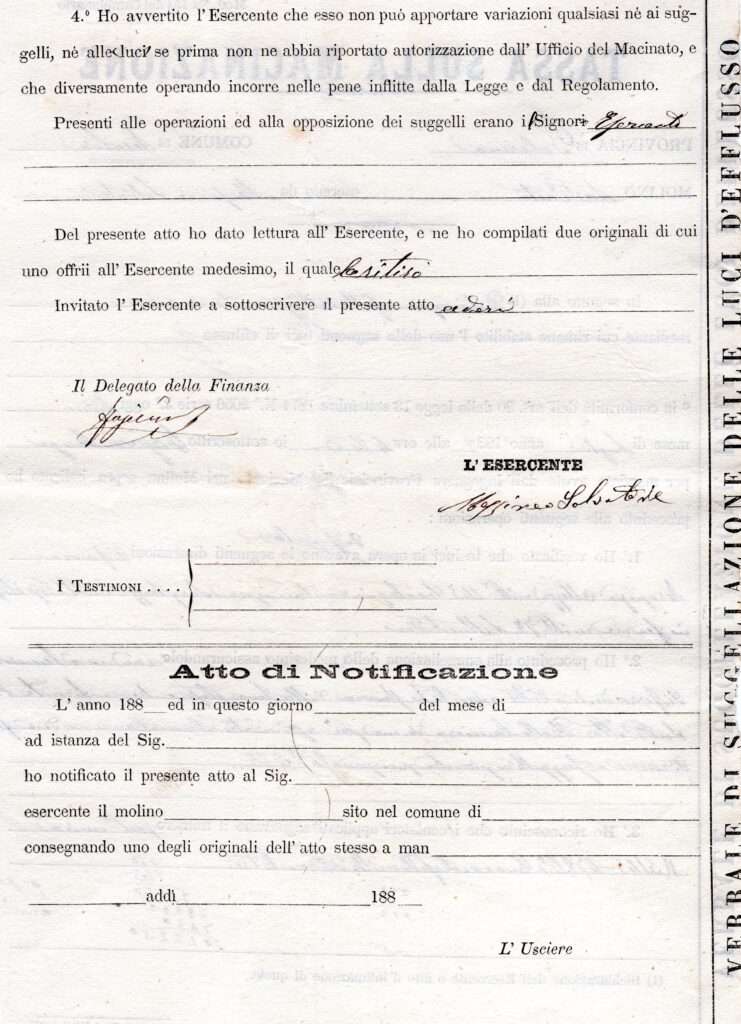 4.º Ho avvertito l'Esercente che esso non può apportare variazioni qualsiasi nè ai sug-
gelli, nè alle luci se prima non ne abbia riportato autorizzazione dall' Ufficio del Macinato, e
che diversamente operando incorre nelle pene inflitte dalla Legge e dal Regolamento.
Presenti alle operazioni ed alla opposizione dei suggelli erano i Signori
Del presente atto ho dato lettura all' Esercente, e ne ho compilati due originali di cui
uno offrii all' Esercente medesimo, il quale
Invitato l' Esercente a sottoscrivere il presente atto aderì
Il Delegato della Finanza
L' ESERCENTE
Messineo Salvatore
I TESTIMONI . . . .
Atto di Notificazione
L' anno 188 ed in questo giorno del mese di
ad istanza del Sig.
ho notificato il presente atto al Sig.
esercente il molino sito nel comune di
consegnando uno degli originali dell' atto stesso a man
addì 188
L' Usciere
VERBALE DI SUGGELLAZIONE DELLE LUCI D'EFFLUSSO